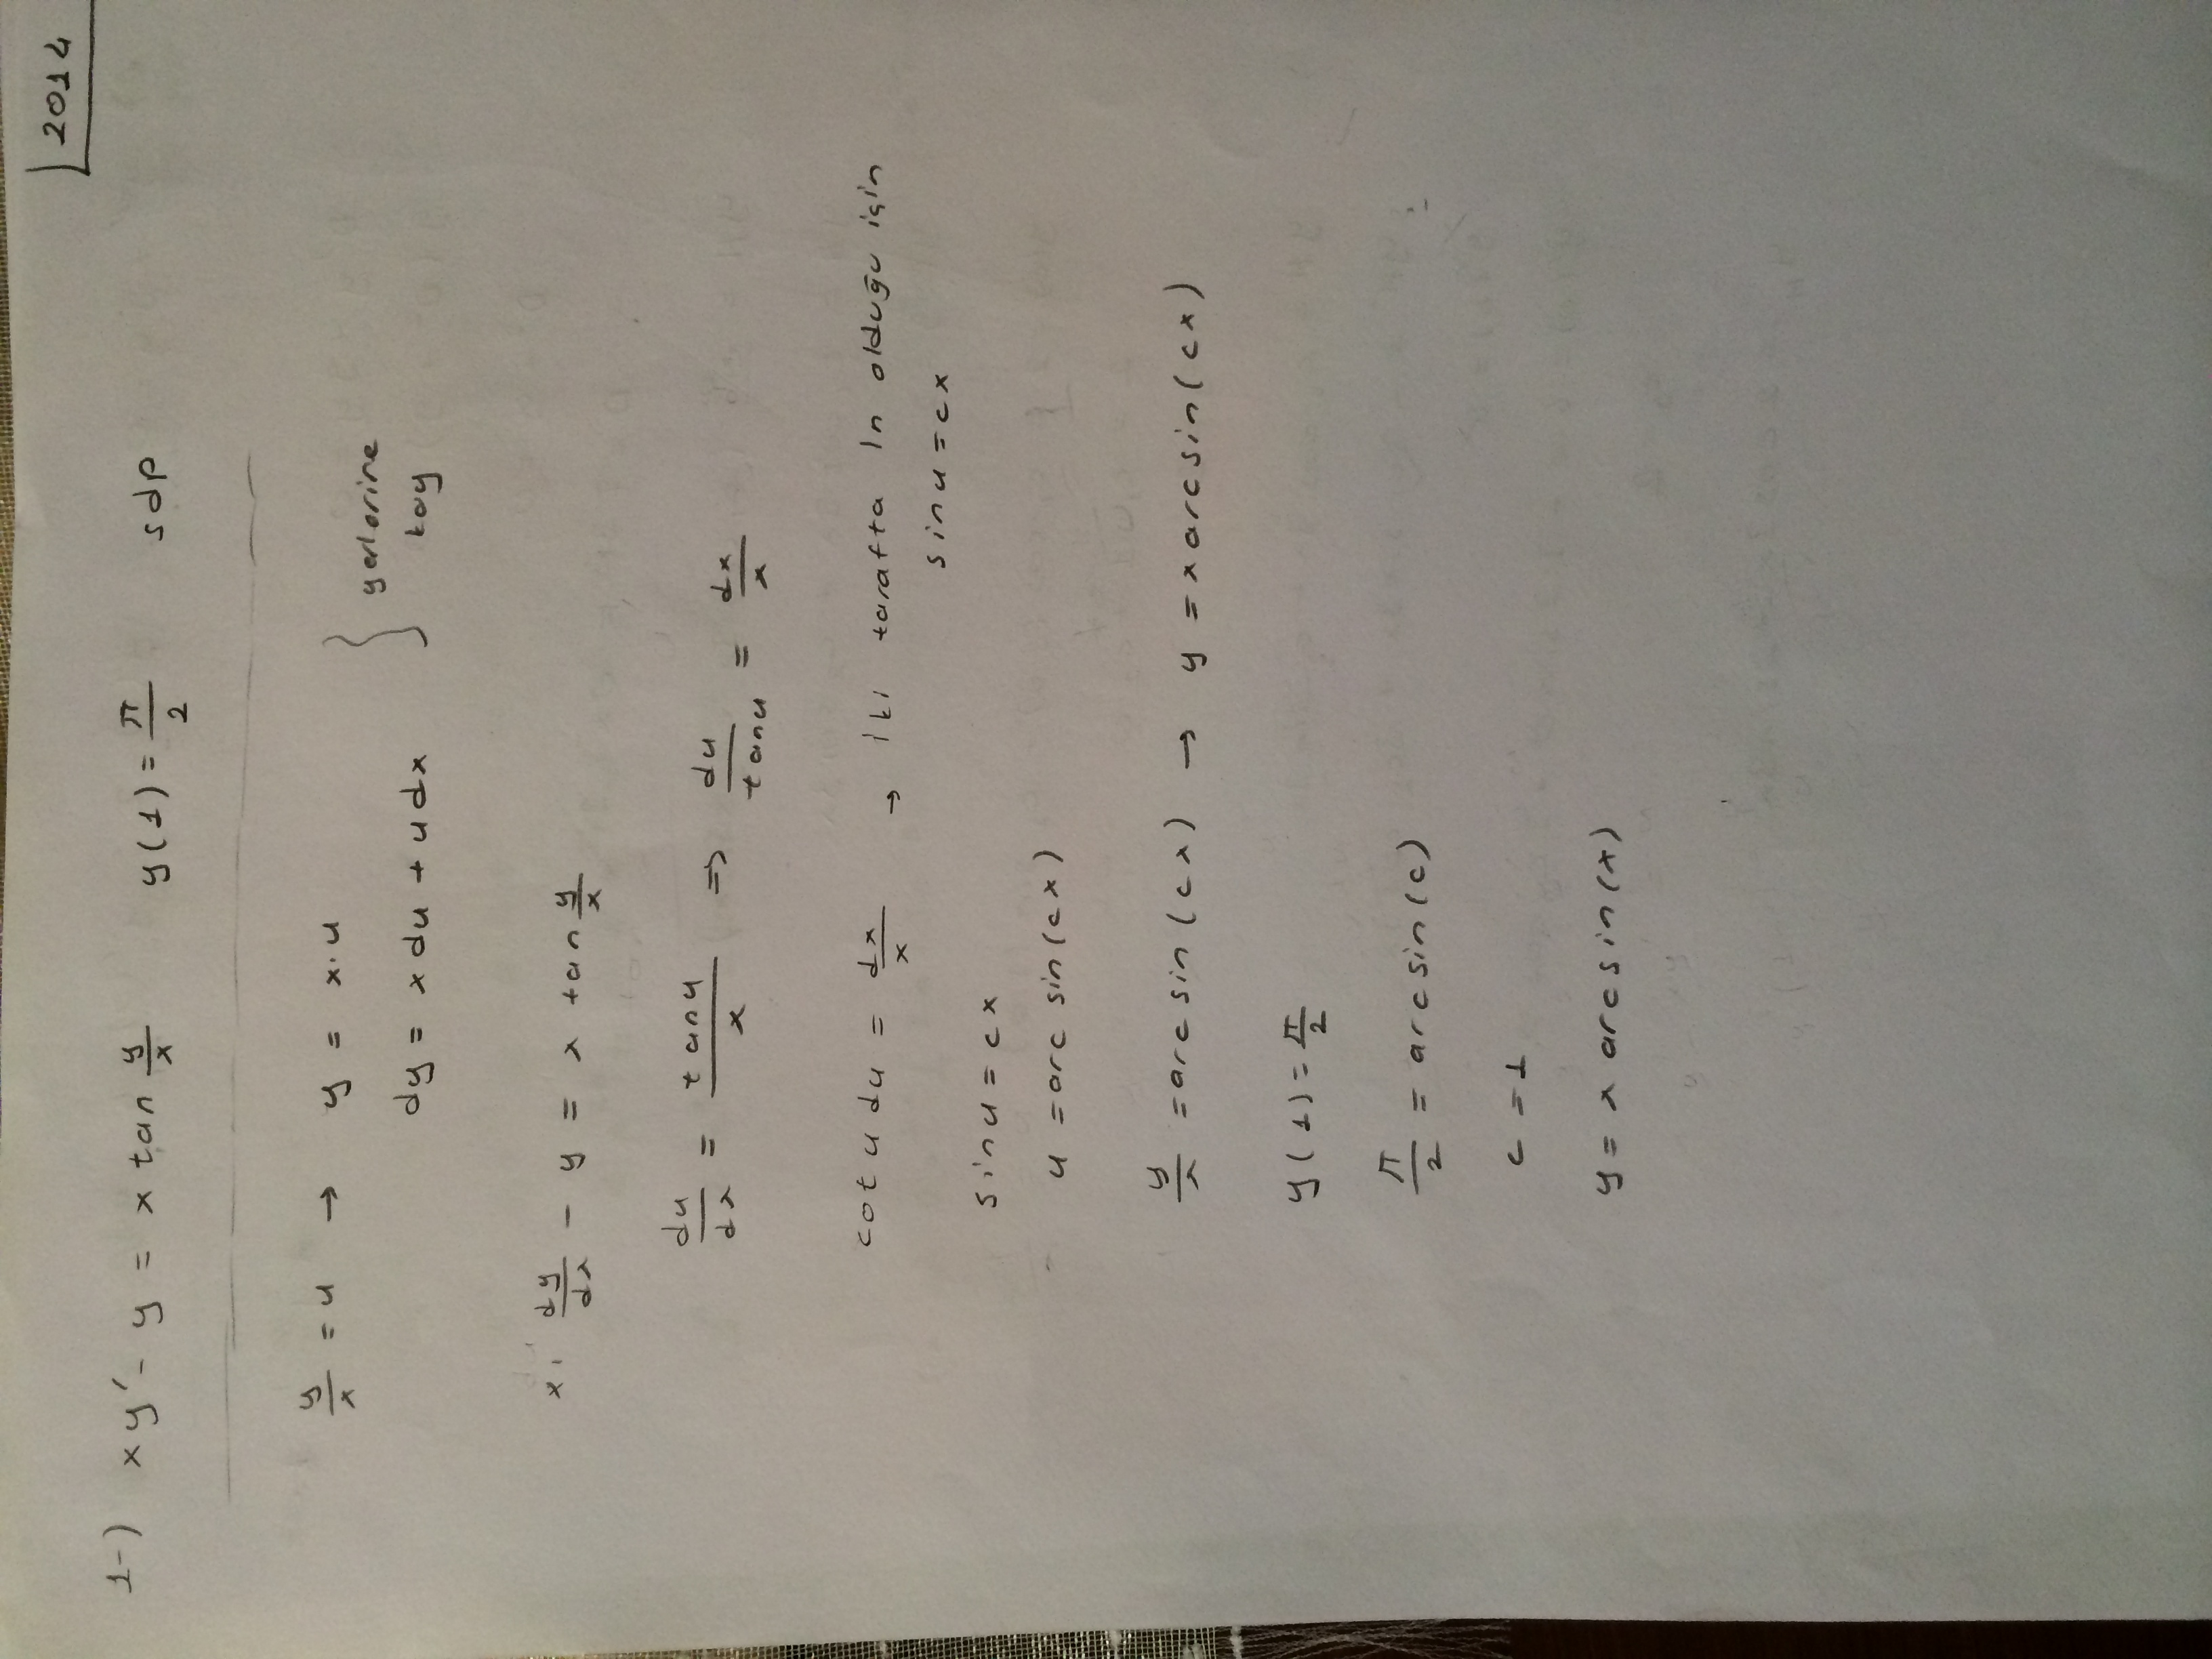 2014
1-) xy' - y = x tan y/x y(1) = π/2 sdp
y/x = u → y = x.u
dy = x du + u dx } yerlerine koy
x. dy/dx - y = x tan y/x
du/dx = tanu/x ⇒ du/tanu = dx/x
cot u du = dx/x → iki tarafta ln olduğu için
sinu = cx
sinu = cx
u = arc sin(cx)
y/x = arcsin(cx) → y = x arcsin(cx)
y(1) = π/2
π/2 = arcsin(c)
c = 1
y = x arcsin(x)